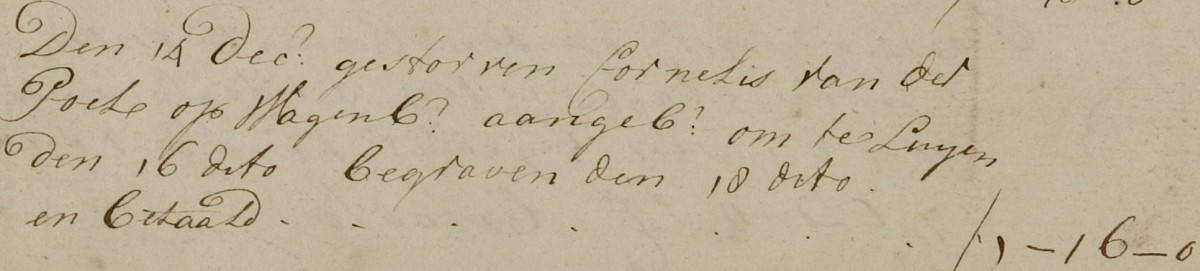 Den 14 Dec:r gestorven Cornelis van der
Poel op Wagenb:r aangeb:r om te Luyen
den 16 dito begraven den 18 dito.
en betaald . . . . . . ƒ 1-16-0